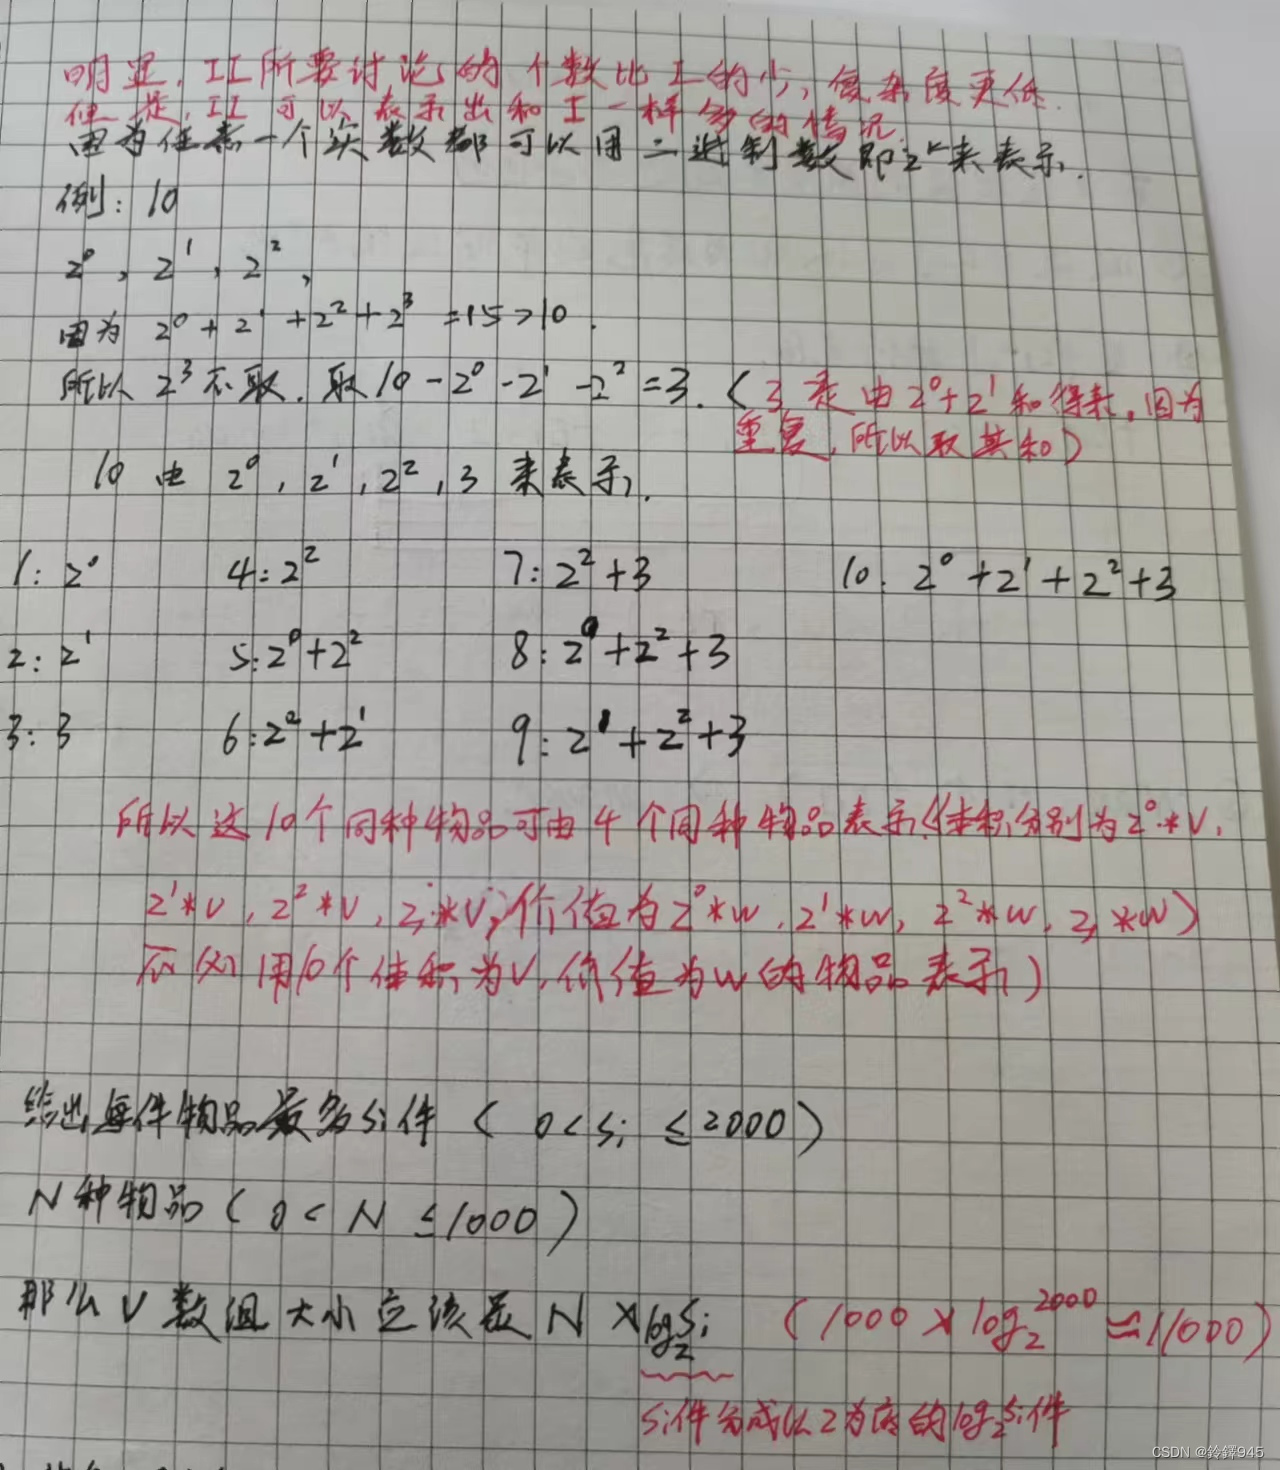 明显，II所要讨论的个数比I的少，复杂度更低.
但是，II可以表示出和I一样多的情况.
因为任意一个实数都可以用二进制数即2^k来表示.
例：10
2^0，2^1，2^2，
因为 2^0+2^1+2^2+2^3=15>10.
所以2^3不取. 取10-2^0-2^1-2^2=3.（3是由2^0+2^1和得来，因为
重复，所以取其和）
10 由 2^0，2^1，2^2，3 来表示.
1：2^0 4：2^2 7：2^2+3 10：2^0+2^1+2^2+3
2：2^1 5：2^0+2^2 8：2^0+2^2+3
3：3 6：2^2+2^1 9：2^1+2^2+3
所以这10个同种物品可由4个同种物品表示（体积分别为2^0*V，
2^1*V，2^2*V，*V；价值为2^0*W，2^1*W，2^2*W，*W）
用10个体积为V，价值为W的物品表示）
给出每件物品最多Si件（0<Si≤2000）
N种物品（0<N≤1000）
那么V数组大小应该是N×log₂Si （1000×log₂2000≈11000）
Si件分成以2为底的log₂Si件
CSDN @鈴鐸945